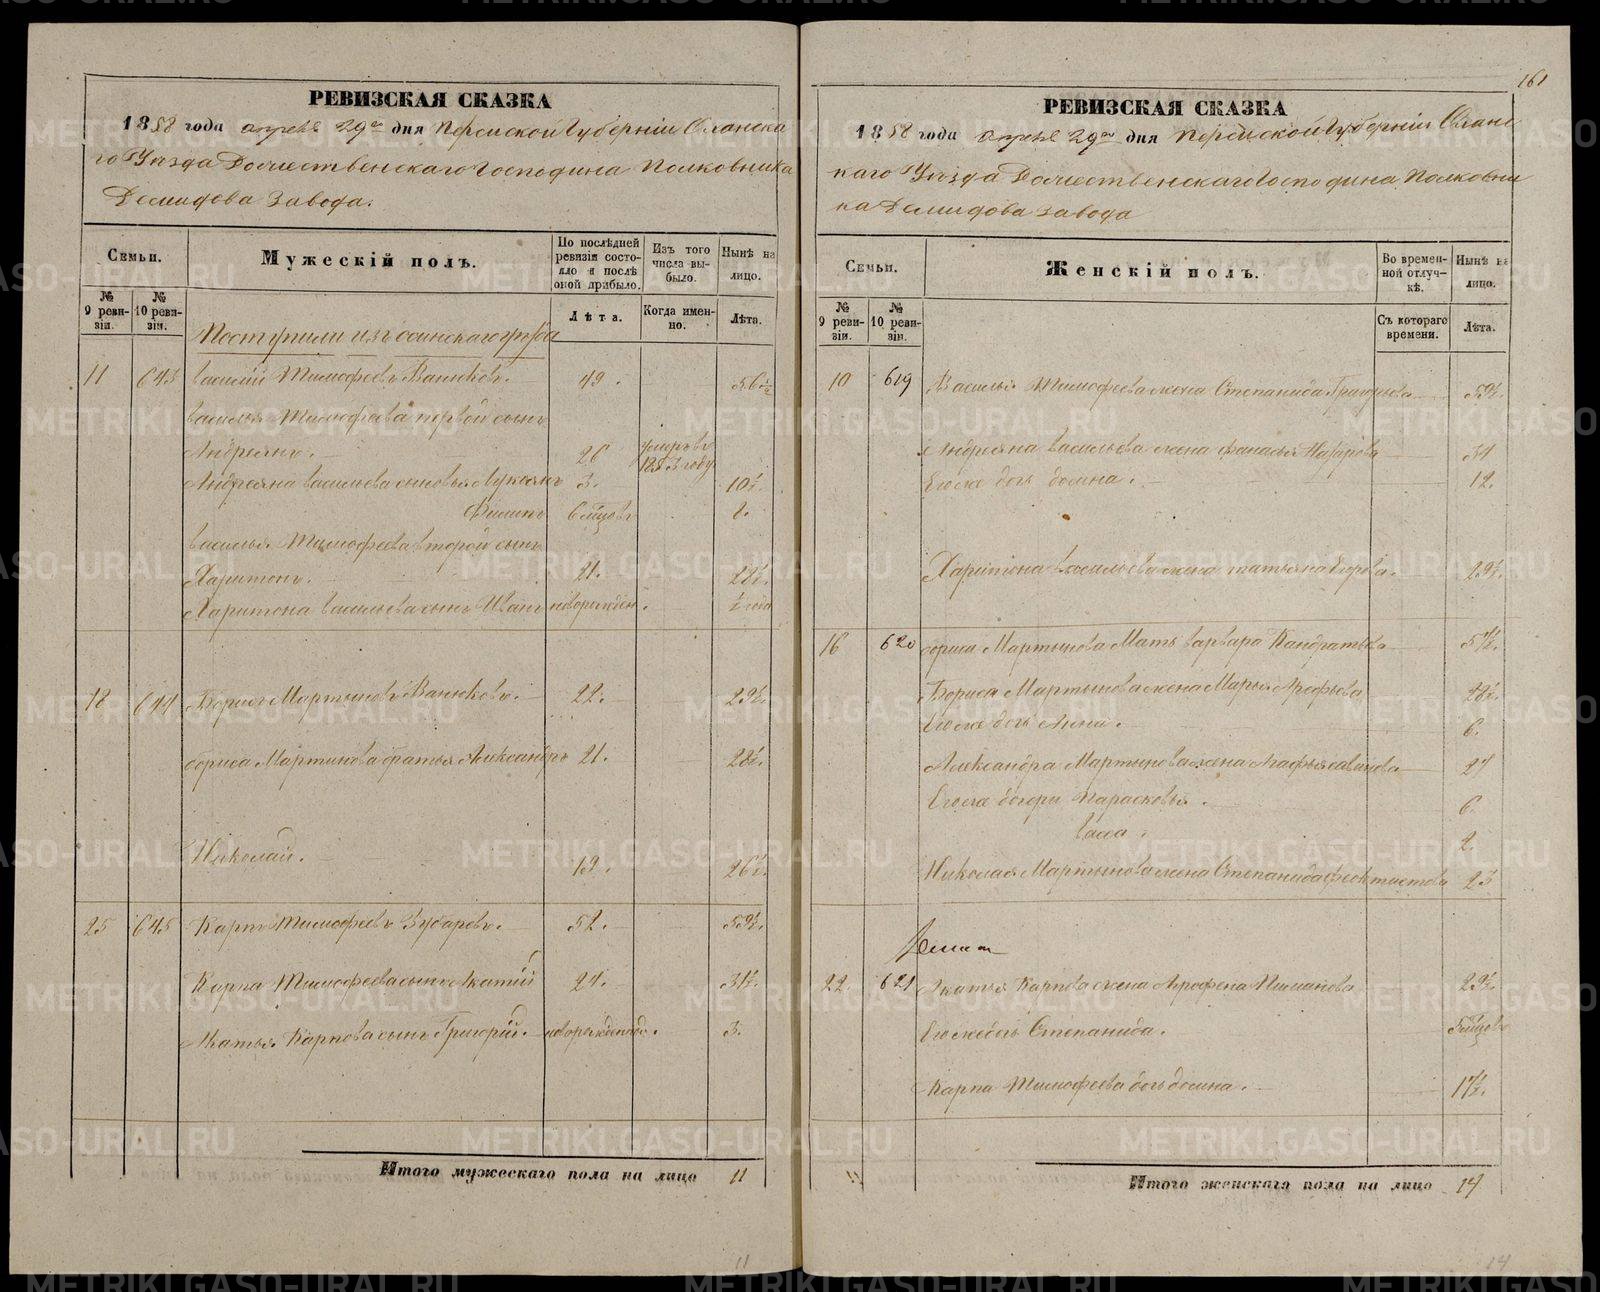 РЕВИЗСКАЯ СКАЗКА
1858 года апреля 29го дня Пермской Губернии Оханска
го Уезда Рождественскаго Господина Полковника
Демидова Завода.
Семьи.
Мужескій полъ.
По послѣдней ревизіи состояло и послѣ оной прибыло.
Изъ того числа выбыло.
Нынѣ на лицо.
№ 9 ревизіи.
№ 10 ревизіи.
Лѣта.
Когда именно.
Лѣта.
Поступили изъ осинскаго уезда
11 643 Василий Тимофеевъ Ванюковъ. 49. 56½
Василья Тимофеева первой сынъ
Андреянъ. 26 умеръ въ 1853 году
Андреяна Васильева сыновья Лукоянъ 3. 10½.
Филипъ 6 мѣцовъ 8.
Василья Тимофеева второй сынъ
Харитонъ. 21. 28½.
Харитона Васильева сынъ Иванъ новорожден. ½ года
18 644 Борисъ Мартыновъ Ванюковъ. 22. 29½.
Бориса Мартынова братья Александръ 21. 28½.
Николай. 19. 26½.
25 645 Карпъ Тимофеевъ Зубаревъ. 52. 59½.
Карпа Тимофеева сынъ Акатий 24. 31½.
Акатья Карпова сынъ Григорий. новорожденной. 3.
Итого мужескаго пола на лицо 11
161
РЕВИЗСКАЯ СКАЗКА
1858 года апреля 29го дня Пермской Губернии Оханс
каго Уезда Рождественскаго Господина Полковни
ка Демидова Завода
Семьи.
Женскій полъ.
Во временной отлучкѣ.
Нынѣ на лицо.
№ 9 ревизіи.
№ 10 ревизіи.
Съ котораго времени.
Лѣта.
10 619 Василья Тимофеева жена Степанида Григорьева 59½.
Андреяна Васильева жена Фанасья Назарова 34
Его же дочь Домна. 12.
Харитона Васильева жена Татьяна Егорова. 29½.
16 620 Бориса Мартынова Мать Варвара Кандратьева 57½.
Бориса Мартынова жена Марья Арефьева 28½.
Его же дочь Анна. 6.
Александра Мартынова жена Агафья Савинова 27
Его же дочери Парасковья. 6.
Васса. 2.
Николая Мартынова жена Степанида Феоктистова 25
22. 621 Акатья Карпова жена Агрофена Пиманова 29½.
Его же дочь Степанида. 5 мѣцовъ
Карпа Тимофеева дочь Домна. 17½.
Итого женскаго пола на лицо 14
11
14
METRIKI.GASO-URAL.RU